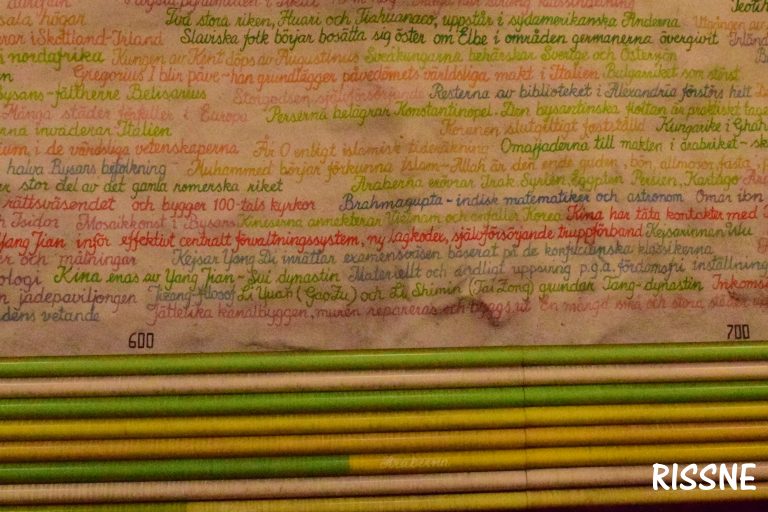 Två stora riken, Huari och Tiahuanaco, uppstår i sydamerikanska Anderna Utgången av
sala högar
rar i Skottland-Irland Slaviska folk börjar bosätta sig öster om Elbe i områden germanerna övergivit
i nordafrika Kungen av Kent döps av Augustinus Sveakungarna behärskar Sverige och Östersjön
Gregorius I blir påve - han grundlägger påvedömets världsliga makt i Italien Bulgarriket som störst
Bysans-fältherre Belisarius Resterna av biblioteket i Alexandria förstörs helt
Många städer förfaller i Europa Perserna belägrar Konstantinopel. Den bysantinska flottan är praktiskt
rna invaderar Italien Koranen slutgiltigt fastställd Kungarike i Ghana
i de världsliga vetenskaperna År 0 enligt islamisk tideräkning Omajjaderna till makten i arabriket
halva Bysans befolkning Muhammed börjar förkunna Islam - Allah är den ende guden, bön, allmosor, fasta,
ar stor del av det gamla romerska riket Araberna erövrar Irak, Syrien, Egypten, Persien, Kartago
rättsväsendet och bygger 100-tals kyrkor Brahmagupta - indisk matematiker och astronom Omar ibn
Isidor Mosaikkonst i Bysans Kineserna annekterar Vietnam och anfaller Korea Kina har täta kontakter med
Yang Jian inför effektivt centralt förvaltningssystem, ny lagkodex, självförsörjande truppförband Kejsarinnan Wu
er och målningar Kejsar Yang Di inrättar examensväsen baserat på de konfucianska klassikerna
ologi Kina enas av Yang Jian - Sui dynastin Materiellt och andligt uppsving p.g.a. fördomsfri inställning
n jadepaviljongen Li Yuan (GaoZu) och Li Shimin (Tai Zong) grundar Tang-dynastin Inkomst
dens vetande Jättelika kanalbyggen, muren repareras och byggs ut En mängd små och stora
600 700
Araberna
RISSNE